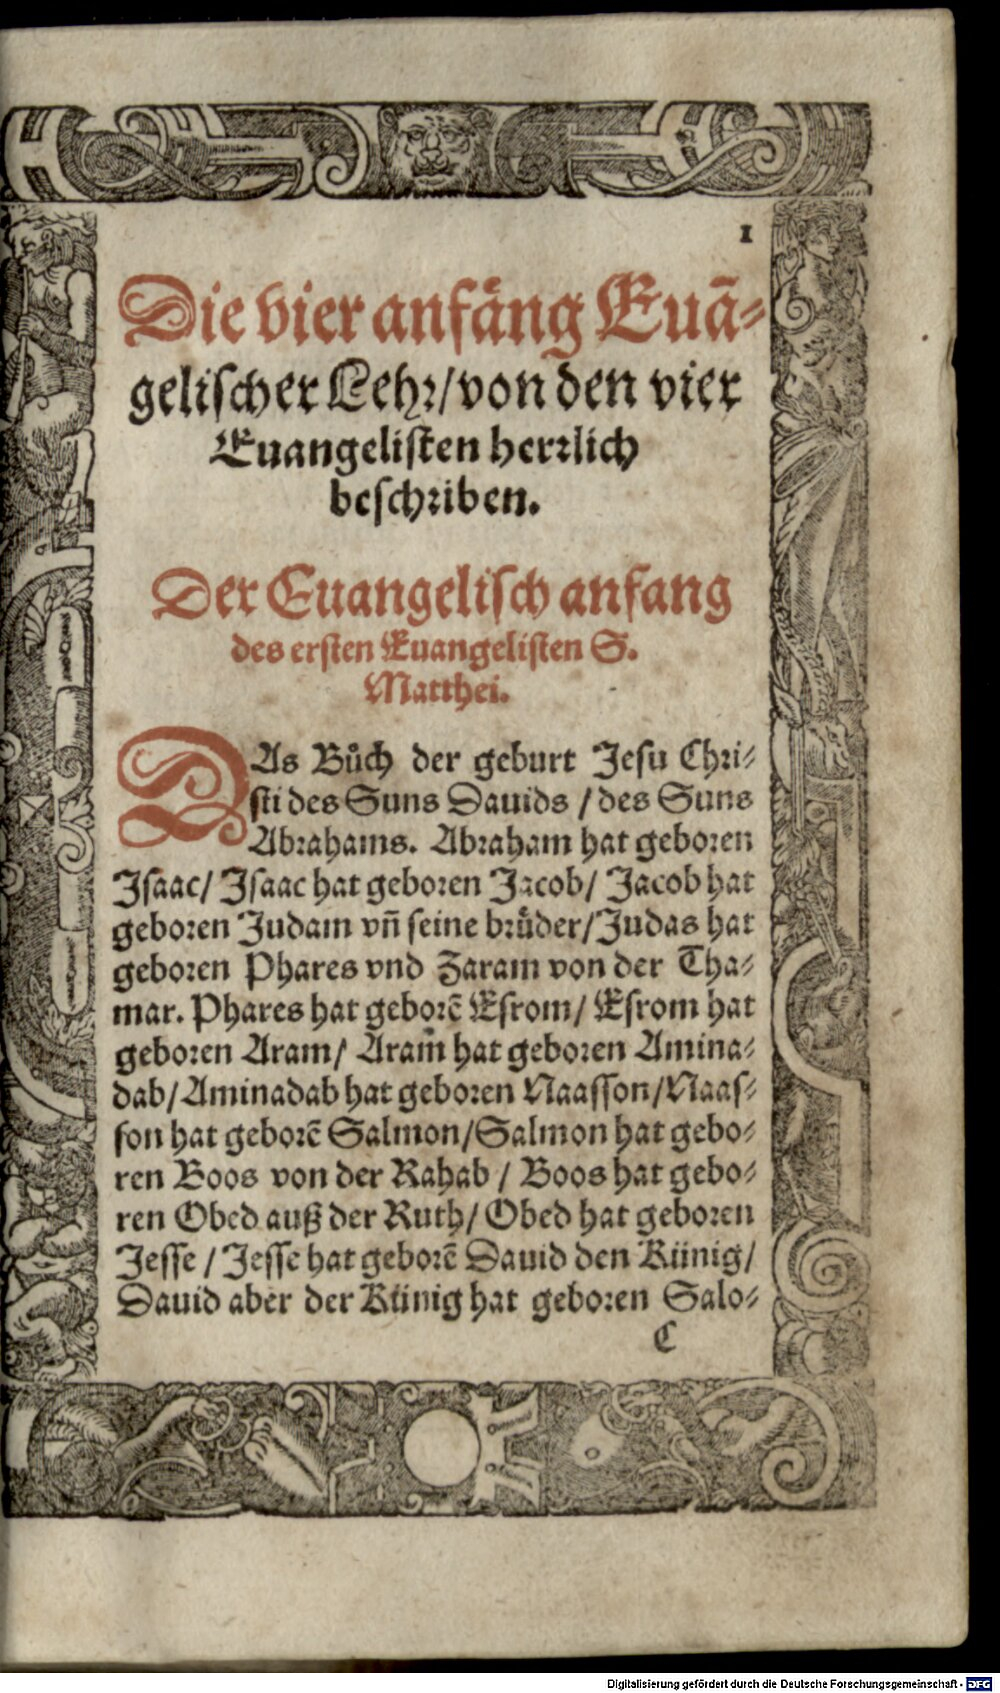 1
Die vier anfäng Euã-
gelischer Lehr/von den vier
Euangelisten herrlich
beschriben.
Der Euangelisch anfang
des ersten Euangelisten S.
Matthei.
DAs Bůch der geburt Jesu Chri-
sti des Suns Dauids / des Suns
Abrahams. Abraham hat geboren
Isaac/ Isaac hat geboren Jacob/ Jacob hat
geboren Judam vñ seine brůder/Judas hat
geboren Phares vnd Zaram von der Tha-
mar. Phares hat geborẽ Esrom/ Esrom hat
geboren Aram/ Aram hat geboren Amina-
dab/Aminadab hat geboren Naasson/Naas-
son hat geborẽ Salmon/Salmon hat gebo-
ren Boos von der Rahab / Boos hat gebo-
ren Obed auß der Ruth/ Obed hat geboren
Jesse / Jesse hat geborẽ Dauid den Künig/
Dauid aber der Künig hat geboren Salo-
C
Digitalisierung gefördert durch die Deutsche Forschungsgemeinschaft - DFG